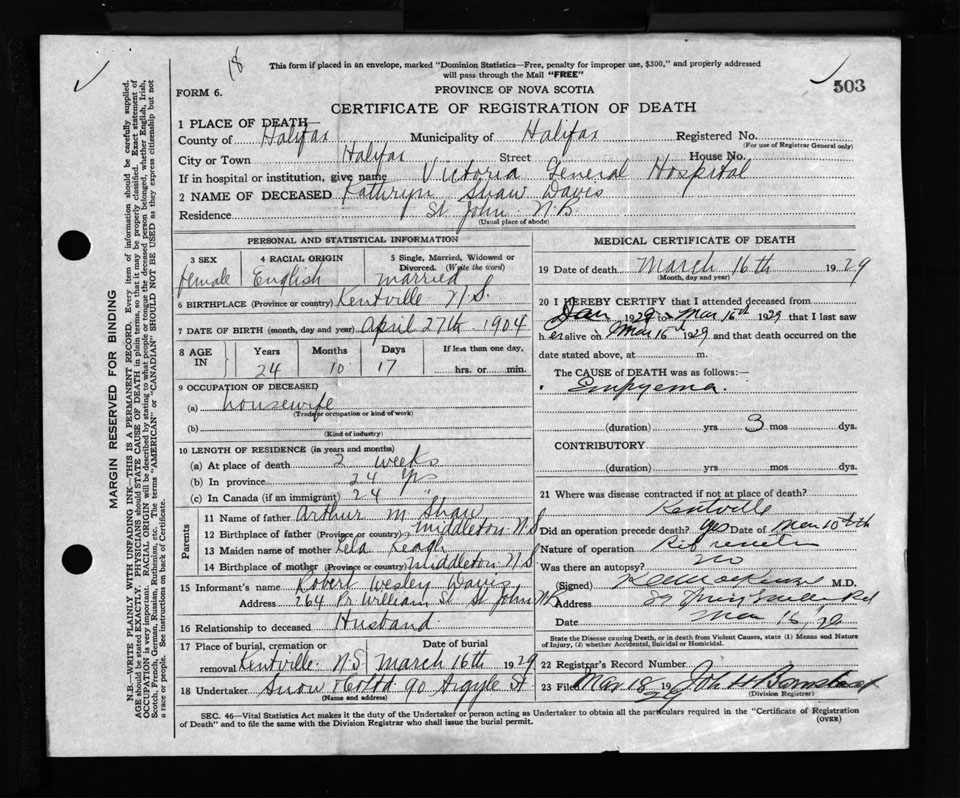 18
This form if placed in an envelope, marked "Dominion Statistics—Free, penalty for improper use, $300," and properly addressed
will pass through the Mail "FREE"
503
FORM 6.
PROVINCE OF NOVA SCOTIA
CERTIFICATE OF REGISTRATION OF DEATH
1 PLACE OF DEATH
County of Halifax Municipality of Halifax Registered No.
(For use of Registrar General only)
City or Town Halifax Street House No.
If in hospital or institution, give name Victoria General Hospital
2 NAME OF DECEASED Kathryn Shaw Davis
Residence St John N.B.
(Usual place of abode)
MARGIN RESERVED FOR BINDING
N.B.—WRITE PLAINLY WITH UNFADING INK—THIS IS A PERMANENT RECORD. Every item of information should be carefully supplied.
AGE should be stated EXACTLY. PHYSICIANS should STATE CAUSE OF DEATH in plain terms, so that it may be properly classified. Exact statement of
OCCUPATION is very important. RACIAL ORIGIN will be described by stating to what people or tongue the deceased person belonged, whether English, Irish,
Scotch, French, German, Russian, Ruthenian, etc. The terms "AMERICAN" or "CANADIAN" SHOULD NOT BE USED as they express citizenship but not
a race or people. See instructions on back of Certificate.
PERSONAL AND STATISTICAL INFORMATION
3 SEX
female
4 RACIAL ORIGIN
English
5 Single, Married, Widowed or
Divorced. (Write the word)
married
6 BIRTHPLACE (Province or country) Kentville N.S.
7 DATE OF BIRTH (month, day and year) April 27th 1904
8 AGE IN Years Months Days If less than one day,
24 10 17 hrs. or min.
9 OCCUPATION OF DECEASED
(a) housewife
(Trade or occupation or kind of work)
(b)
(Kind of industry)
10 LENGTH OF RESIDENCE (in years and months)
(a) At place of death 2 weeks
(b) In province 24 yrs
(c) In Canada (if an immigrant) 24 "
Parents
11 Name of father Arthur M. Shaw
12 Birthplace of father (Province or country) Middleton N.S
13 Maiden name of mother
14 Birthplace of mother (Province or country) Middleton N S
15 Informant's name Robert Wesley Davis
Address 264 Pr. William St St John N.B.
16 Relationship to deceased Husband
17 Place of burial, cremation or Date of burial
removal Kentville N.S March 16th 1929
18 Undertaker Snow & Co Ltd 90 Argyle St
(Name and address)
MEDICAL CERTIFICATE OF DEATH
19 Date of death March 16th 1929
(Month, day and year)
20 I HEREBY CERTIFY that I attended deceased from
Jan 1929 to Mar 16th 1929 that I last saw
her alive on Mar 16th 1929 and that death occurred on the
date stated above, at m.
The CAUSE OF DEATH was as follows:—
Empyema
(duration) yrs 3 mos dys.
CONTRIBUTORY
(duration) yrs mos dys.
21 Where was disease contracted if not at place of death?
Kentville
Did an operation precede death? Yes Date of Mar 10th
Nature of operation Rib resection
Was there an autopsy? No
(Signed) MacKenzie M.D.
Address 89
Date Mar 16,
State the Disease causing Death, or in death from Violent Causes, state (1) Means and Nature
of Injury, (2) whether Accidental, Suicidal or Homicidal.
22 Registrar's Record Number
23 Filed Mar 18 1929 John H
(Division Registrar)
SEC. 46—Vital Statistics Act makes it the duty of the Undertaker or person acting as Undertaker to obtain all the particulars required in the "Certificate of Registration
of Death" and to file the same with the Division Registrar who shall issue the burial permit.
(OVER)